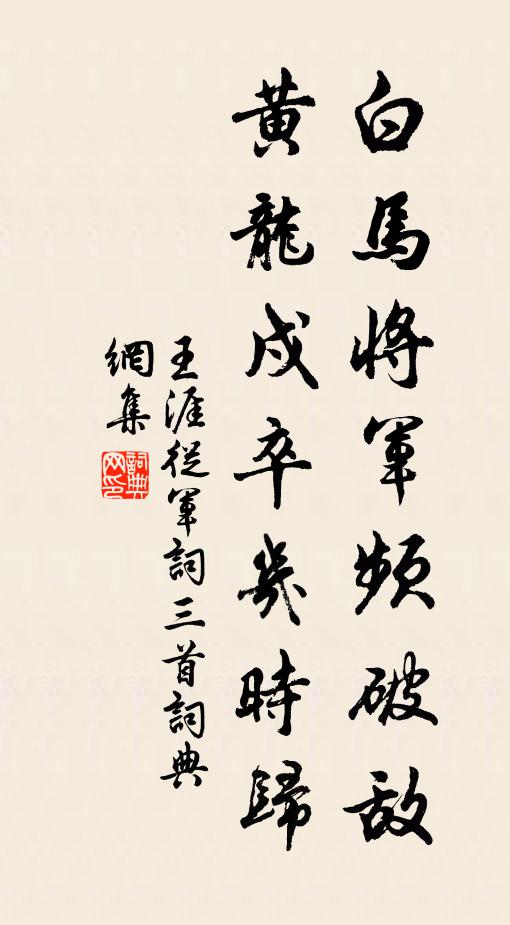 白馬將軍頻破敵
黃龍戍卒幾時歸
王涯從軍詞三首詞典
網集
詞典
网印